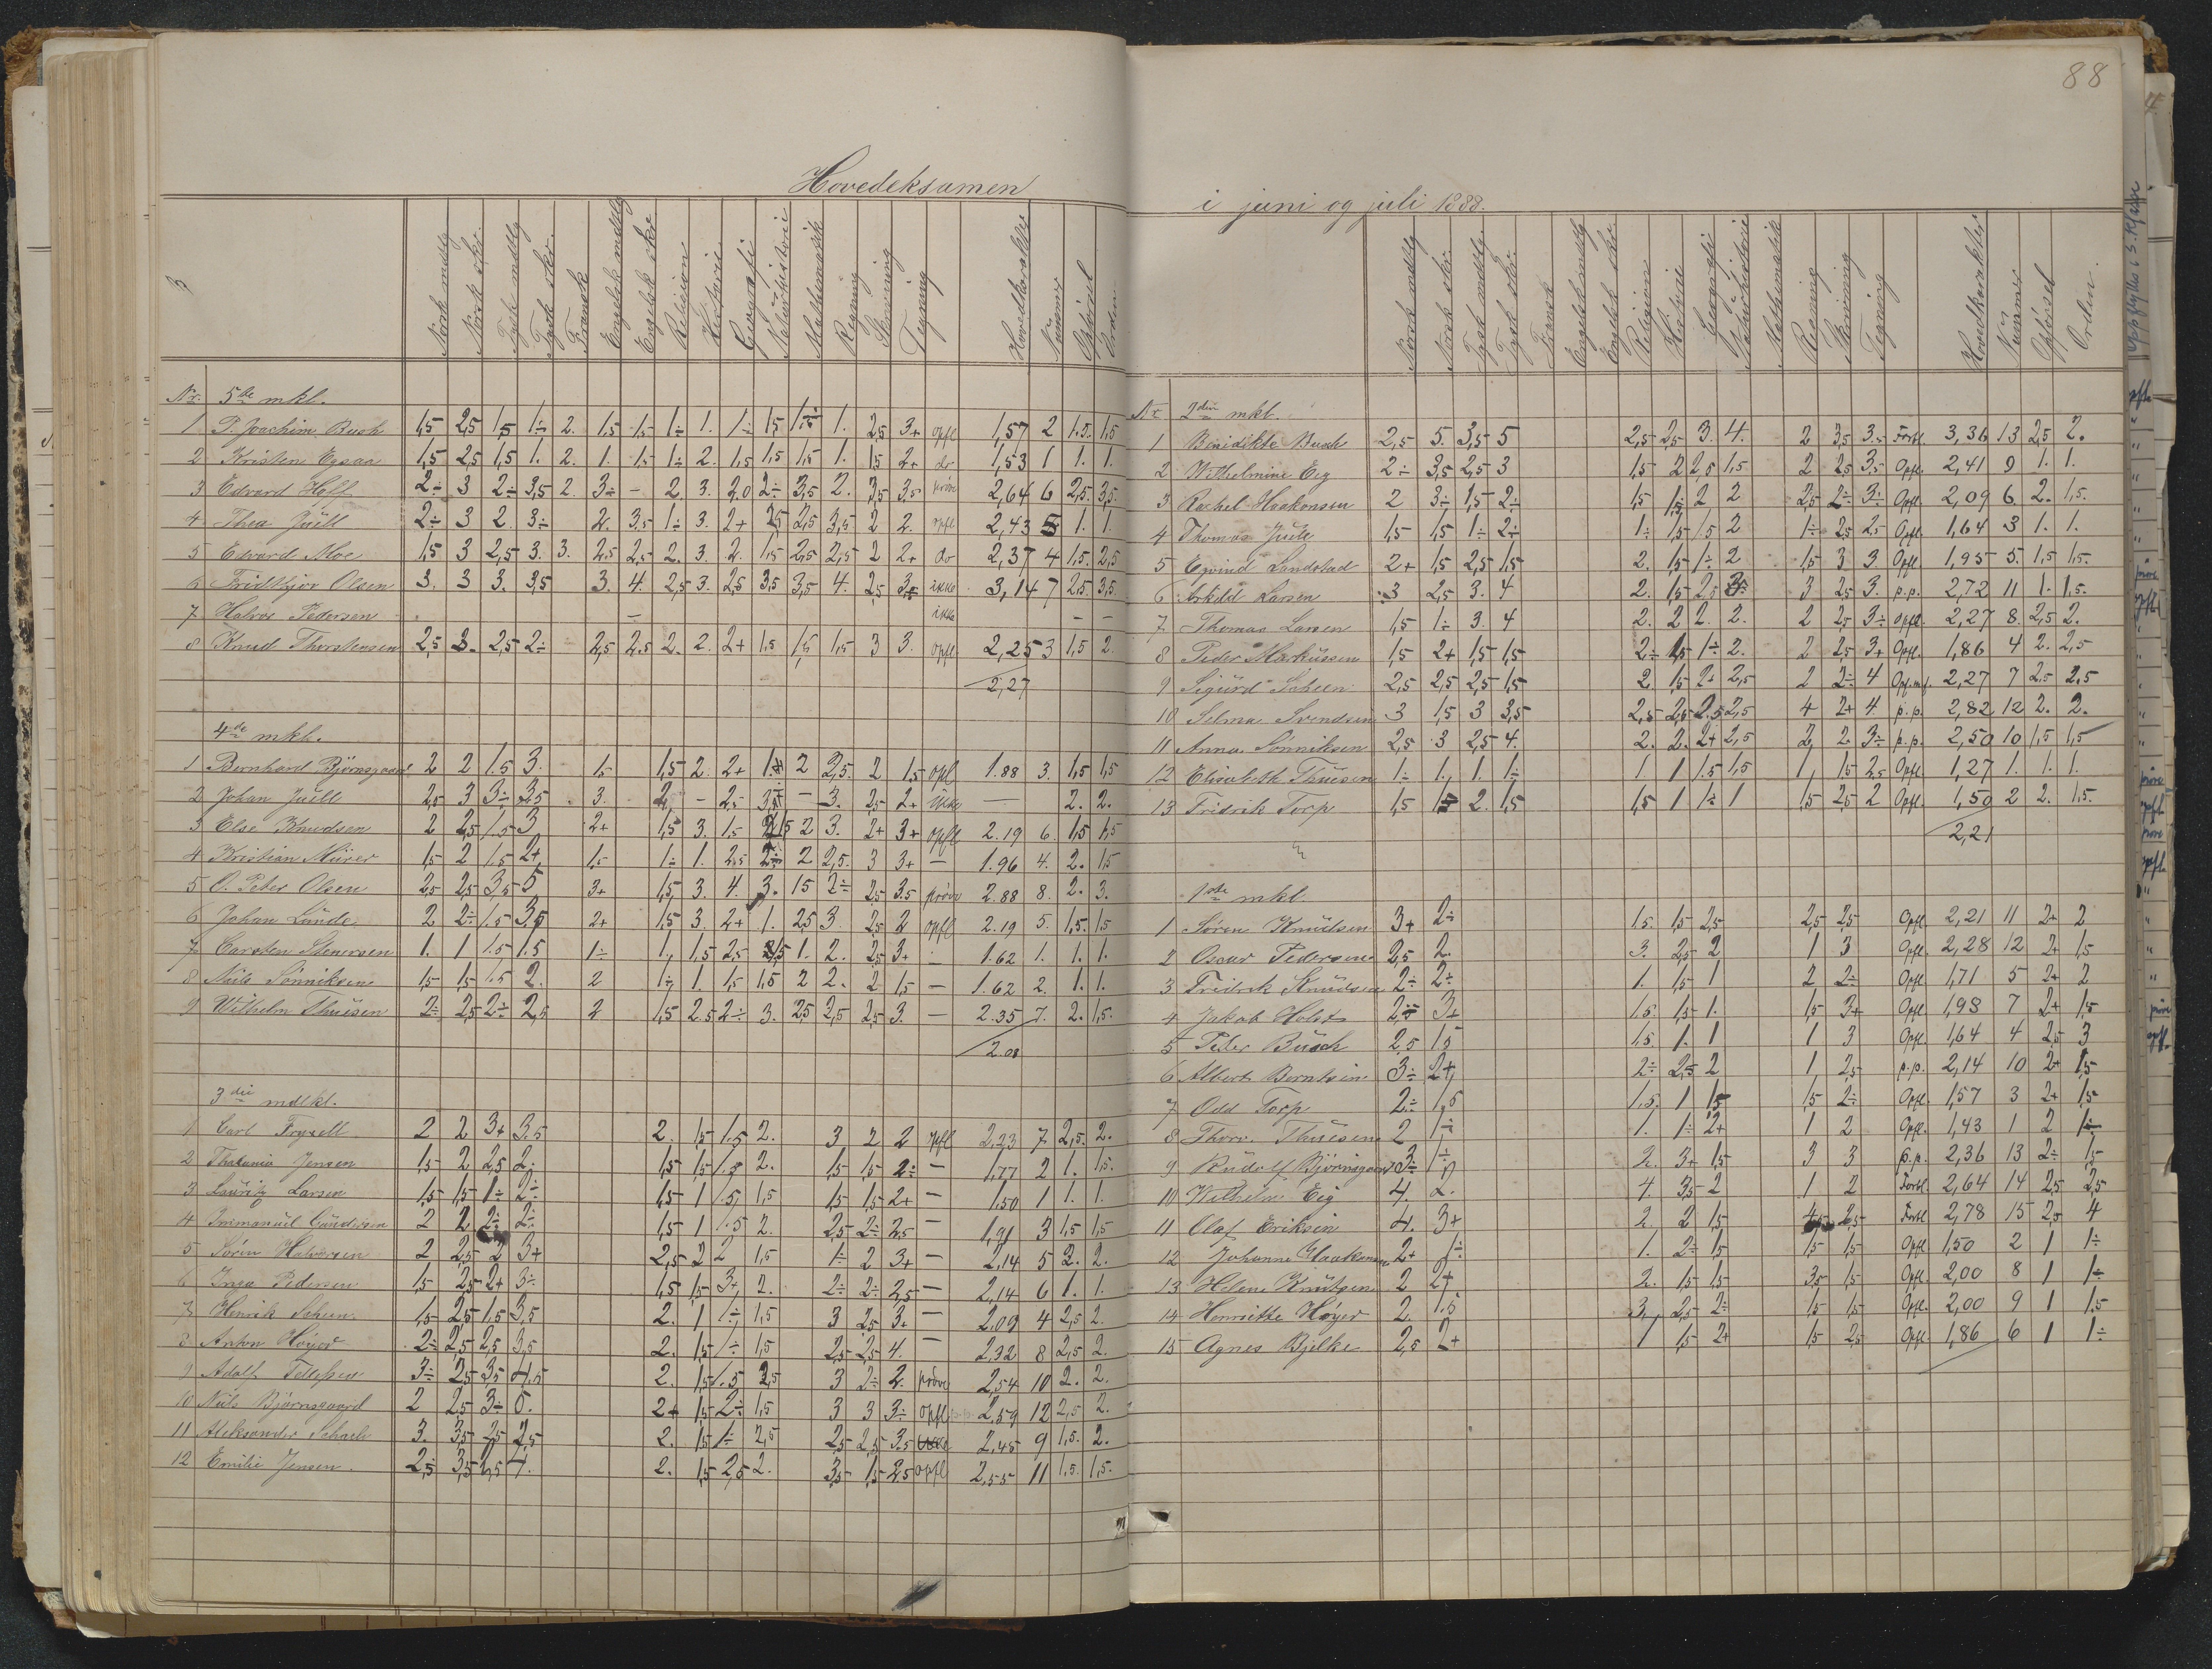 88
Hovedeksamen
i juni og juli 1888.
Norsk mdtlg Norsk skr. Tysk mdtlg Tysk skr. Fransk Engelsk mdtlg Engelsk skr Religion Historie Geografi Naturhistorie Mathematik Regning Skrivning Tegning Hovedkarakter Nummer Opførsel Orden
Nr. 5te mkl.
1 P. Joachim Buch 1,5 2,5 1,5 1÷ 2. 1,5 1,5 1÷ 1. 1÷ 1,5 1÷ 1. 2,5 3+ opfl 1,57 2 1.5. 1,5
2 Kristen Egsaa 1,5 2,5 1,5 1. 2. 1. 1,5 1÷ 2. 1,5 1,5 1,5 1. 1,5 2+ do 1,53 1 1. 1.
3 Edvard Hoff 2÷ 3 2÷ 3,5 2. 3÷ - 2. 3. 2,0 2÷ 3,5 2. 3,5 3,5 prøve 2,64 6 2,5. 3,5.
4 Thea Juell 2÷ 3 2. 3÷ 2. 3.5 1÷ 3. 2+ 2,5 2,5 3,5. 2 2. opfl. 2,43 5 1. 1.
5 Edvard Moe 1,5 3 2,5 3. 3. 2,5 2,5 2. 3. 2. 1,5 2,5 2,5 2 2+ do 2,37 4 1,5. 2,5
6 Fridthjov Olsen 3. 3 3. 3,5 3. 4. 2,5 3. 2,5 3,5 3,5 4. 2,5 3+ ikke 3,14 7 2,5. 3,5.
7 Halvor Pedersen - ikke - -
8 Knud Thorstensen 2,5 3. 2,5 2÷ 2,5 2.5 2. 2. 2+ 1,5 1,5 1,5 3 3. opfl 2,25 3 1,5 2.
2,27
4de mkl.
1 Bernhard Bjørnsgaard 2 2 1.5 3. 1,5 1,5 2. 2+ 1. 2 2,5. 2 1,5 opfl 1.88 3. 1,5 1,5
2 Johan Juell 2,5 3 3÷ 3,5 3. 2, - 2,5 - 3. 2,5 2+ ikke - 2. 2.
3 Else Knudsen 2 2,5 1.5 3 2+ 1,5 3. 1,5 2 3. 2+ 3+ opfl 2.19 6. 1,5 1,5
4 Kristian Mürer 1,5 2 1.5 2+ 1,5 1÷ 1. 2.5 2÷ 2 2,5. 3 3+ - 1.96 4. 2. 1,5
5 O. Peter Olsen 2,5 2,5 3,5 5 3+ 1,5 3. 4. 3. 1,5 2÷ 2,5 3.5 prøve 2.88 8. 2. 3.
6 Johan Lunde 2 2÷ 1.5 3,5 2+ 1,5 3. 2+ 1. 2,5 3. 2,5 2 opfl 2.19 5. 1,5. 1,5
7 Carsten Stenersen 1. 1 1.5 1.5 1÷ 1., 1.5 2,5 1. 2. 2,5 3+ - 1.62 1. 1. 1.
8 Nils Sønniksen 1,5 1,5 1.5 2. 2 1÷ 1. 1,5 1,5 2 2. 2 1,5 - 1.62 2. 1. 1.
9 Wilhelm Thuesen 2÷ 2,5 2÷ 2,5 2 1,5 2.5 2÷ 3. 2,5 2,5 2,5 3. - 2.35 7. 2. 1,5.
2.08
3die mdlkl.
1 Carl Fryxell 2 2 3+ 3.5 2. 1,5 1.5 2. 3 2 2 opfl 2,23 7 2,5. 2.
2 Thalania Jensen 1,5 2 2,5 2. 1,5 1,5 1.5 2. 1,5 1,5 2÷ - 1,77 2 1. 1,5.
3 Lauritz Larsen 1,5 1,5 1÷ 2÷ 1,5 1 1.5 1,5 1,5 1,5 2+ - 1,50 1 1. 1.
4 Immanuel Gundersen 2 2 2÷ 2÷ 1,5 1 1.5 2. 2,5 2÷ 2,5 - 1,91 3 1,5 1,5
5 Søren Halvorsen 2 2,5 2 3+ 2,5 2 2 1,5 1÷ 2 3+ - 2,14 5 2. 2.
6 Inga Pedersen 1,5 2,5 2+ 3÷ 1,5 1,5 3+ 2. 2÷ 2÷ 2,5 - 2,14 6 1. 1.
7 Henrik Scheen 1,5 2,5 1,5 3,5 2. 1 1÷ 1,5 3 2,5 3+ - 2.09 4 2,5 2.
8 Anton Høyer 2÷ 2,5 2,5 3,5 2. 1,5 1÷ 1,5 2,5 2,5 4. - 2,32 8 2,5 2.
9 Adolf Tellefsen 3÷ 2,5 3,5 4.5 2. 1,5 1.5 2,5 3 2÷ 2. prøve 2,54 10 2. 2.
10 Nils Bjørnsgaard 2 2,5 3÷ 5. 2+ 1,5 2÷ 1,5 3 3 3÷ opfl p.p. 2,59 12 2,5 2.
11 Aleksander Schach 3. 3,5 2,5 2,5 2. 1,5 1÷ 2,5 2,5 2,5 3.5 ikke 2,45 9 1,5. 2.
12 Emilie Jensen. 2,5 3,5 2,5 4. 2. 1,5 2,5 2. 3,5 1,5 2,5 opfl 2,55 11 1,5. 1,5.
Norsk mdtlg Norsk skr. Tysk mdtlg. Tysk skr. Fransk Engelsk mdtlg Engelsk skr. Religion Historie Geografi Naturhistorie Mathematik Regning Skrivning Tegning Hovedkarakter Nummer Opførsel Orden.
Nr 2den mkl.
1 Benidikte Buch 2,5 5. 3,5 5 2,5 2,5 3. 4. 2 3,5 3.5 Forbl. 3,36 13 2,5 2.
2 Wilhelmine Eeg 2÷ 3,5 2,5 3 1,5 2 2,5 1,5 2 2,5 3,5 Opfl. 2,41 9 1. 1.
3 Rachel Haakonsen 2 3÷ 1,5 2÷ 1,5 1,5 2 2 2,5 2÷ 3÷ Opfl. 2,09 6. 2. 1,5.
4 Thomas Juell 1,5 1,5 1÷ 2÷ 1÷ 1,5 1,5 2 1÷ 2,5 2,5 Opfl. 1,64 3 1. 1.
5 Eyvind Landstad 2+ 1,5 2,5 1,5 2. 1,5 1÷ 2 1,5 3 3. Opfl 1,95 5. 1,5 1,5.
6 Askild Larsen 3 2,5 3. 4 2. 1,5 2,5 3. 3 2,5 3. p.p. 2,72 11 1. 1,5.
7 Thomas Larsen 1,5 1÷ 3. 4 2. 2 2. 2. 2 2,5 3÷ opfl. 2,27 8. 2,5 2.
8 Peder Markussen 1,5 2+ 1,5 1,5 2÷ 1,5 1÷ 2. 2 2,5 3+ Opfl. 1,86 4 2. 2,5
9 Sigurd Scheen 2,5 2,5 2,5 1,5 2. 1,5 2+ 2,5 2 2÷ 4 2,27 7 2,5 2,5
10 Selma Svendsen 3 1,5 3 3,5 2,5 2,5 2.5 2,5 4 2+ 4 p.p. 2,82 12 2. 2.
11 Anna Sønniksen 2,5 3 2,5 4. 2. 2. 2+ 2,5 2 2. 3÷ p.p. 2,50 10 1,5 1,5
12 Elisabeth Thuesen 1÷ 1., 1. 1÷ 1 1 1.5 1,5 1, 1,5 2,5 Opfl 1,27 1. 1. 1.
13 Fridrik Torp 1,5 1,5 2. 1,5 1,5 1 1÷ 1 1,5 2,5 2 Opfl. 1,50 2 2. 1,5.
2,21
1ste mkl.
1 Søren Knudsen 3+ 2÷ 1.5. 1,5 2,5 2,5 2,5 Opfl 2,21 11 2+ 2
2 Oscar Pedersen 2,5 2. 3. 2,5 2 1 3 Opfl. 2,28 12 2+ 1,5
3 Fridrik Knudsen 2÷ 2÷ 1. 1,5 1 2 2÷ Opfl 1,71 5 2+ 2
4 Jakob Holst 2,5 3+ 1.5. 1,5 1. 1,5 3+ Opfl 1,98 7 2+ 1,5
5 Peder Busch 2,5 1,5 1.5. 1. 1 1 3 Opfl. 1,64 4 2,5 3
6 Albert Berntsen 3÷ 2+ 2÷ 2,5 2 1 2,5 p.p. 2,14 10 2+ 1,5
7 Odd Torp 2÷ 1,5 1.5. 1 1,5 1,5 2÷ Opfl 1,57 3 2+ 1,5
8 Thorv. Thuesen 2 1÷ 1. 1÷ 2+ 1 2 Opfl. 1,43 1 2 1÷
9 Rudolf Bjørnsgaard 3÷ 1÷ 2. 3+ 1,5 3 3 p.p. 2,36 13 2÷ 1,5
10 Wilhelm Eeg 4. 2. 4. 3,5 2 1 2 Forbl 2,64 14 2,5 2,5
11 Olaf Eriksen 4. 3+ 2. 2 1,5 2,5 Forbl 2,78 15 2,5 4
12 Johanne Haakonsen 2+ 1÷ 1. 2÷ 1,5 1,5 1,5 Opfl 1,50 2 1 1÷
13 Helene Knutsen 2 2+ 2. 1,5 1,5 3,5 1,5 Opfl. 2,00 8 1 1÷
14 Henriette Høyer 2. 1.5 3., 2,5 2÷ 1,5 1,5 Opfl. 2,00 9 1 1,5
15 Agnes Bjelke 2,5 2+ 1 1,5 2+ 1,5 2,5 Opfl 1,86 6 1 1÷